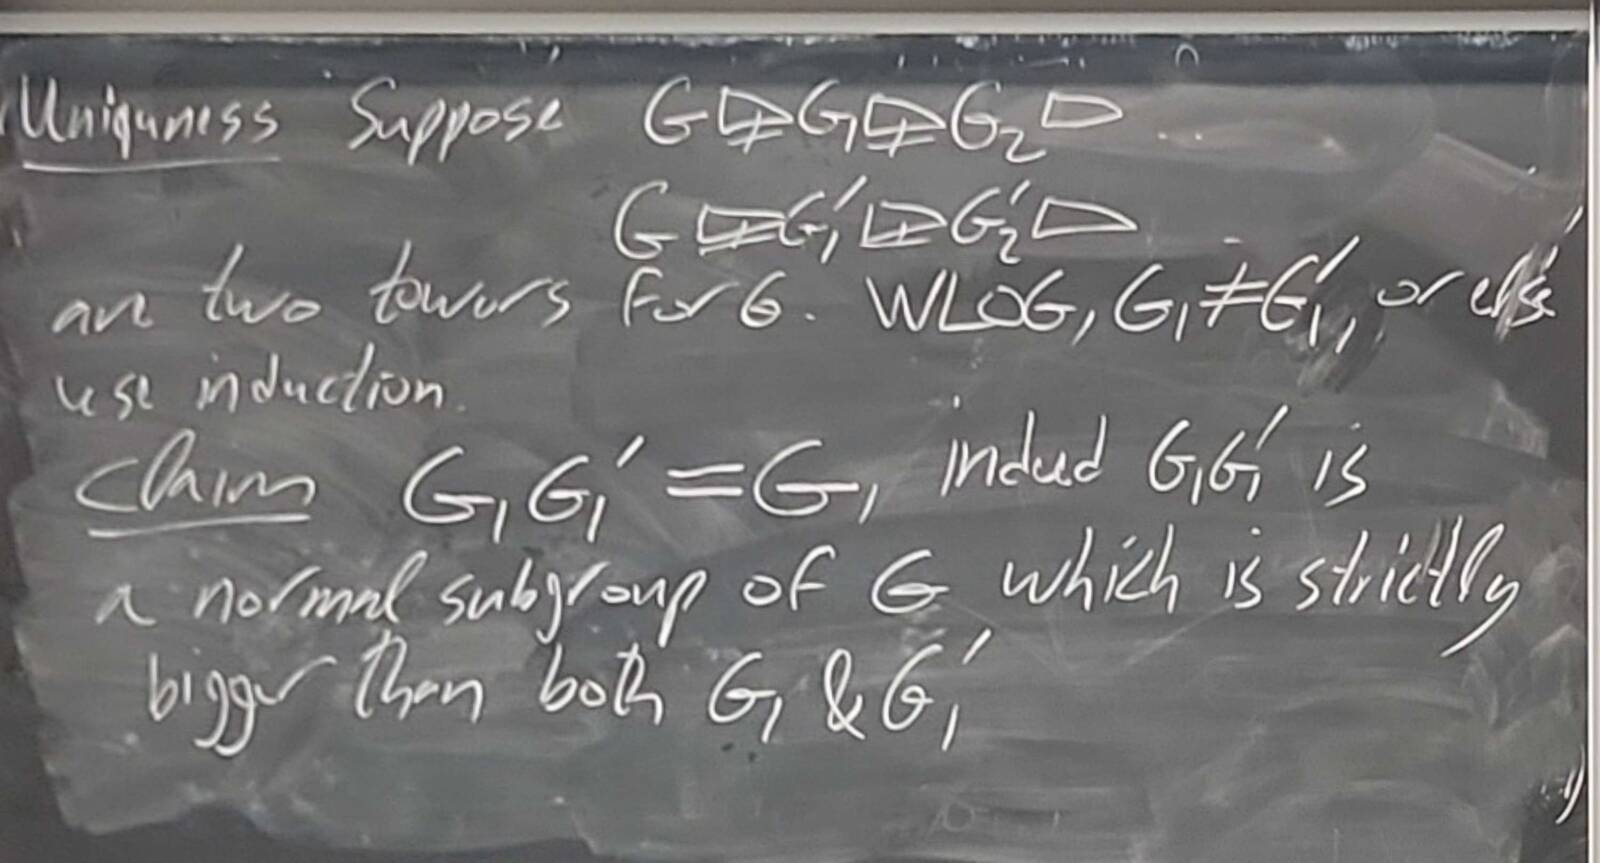 Uniquness Suppose G ⋭ G₁ ⋭ G₂ ▷ ...
G ⋭ G₁′ ⋭ G₂′ ▷
are two towers for G. WLOG, G₁ ≠ G₁′, or else
use induction.
Claim G₁G₁′ = G, indeed G₁G₁′ is
a normal subgroup of G which is strictly
bigger than both G₁ & G₁′